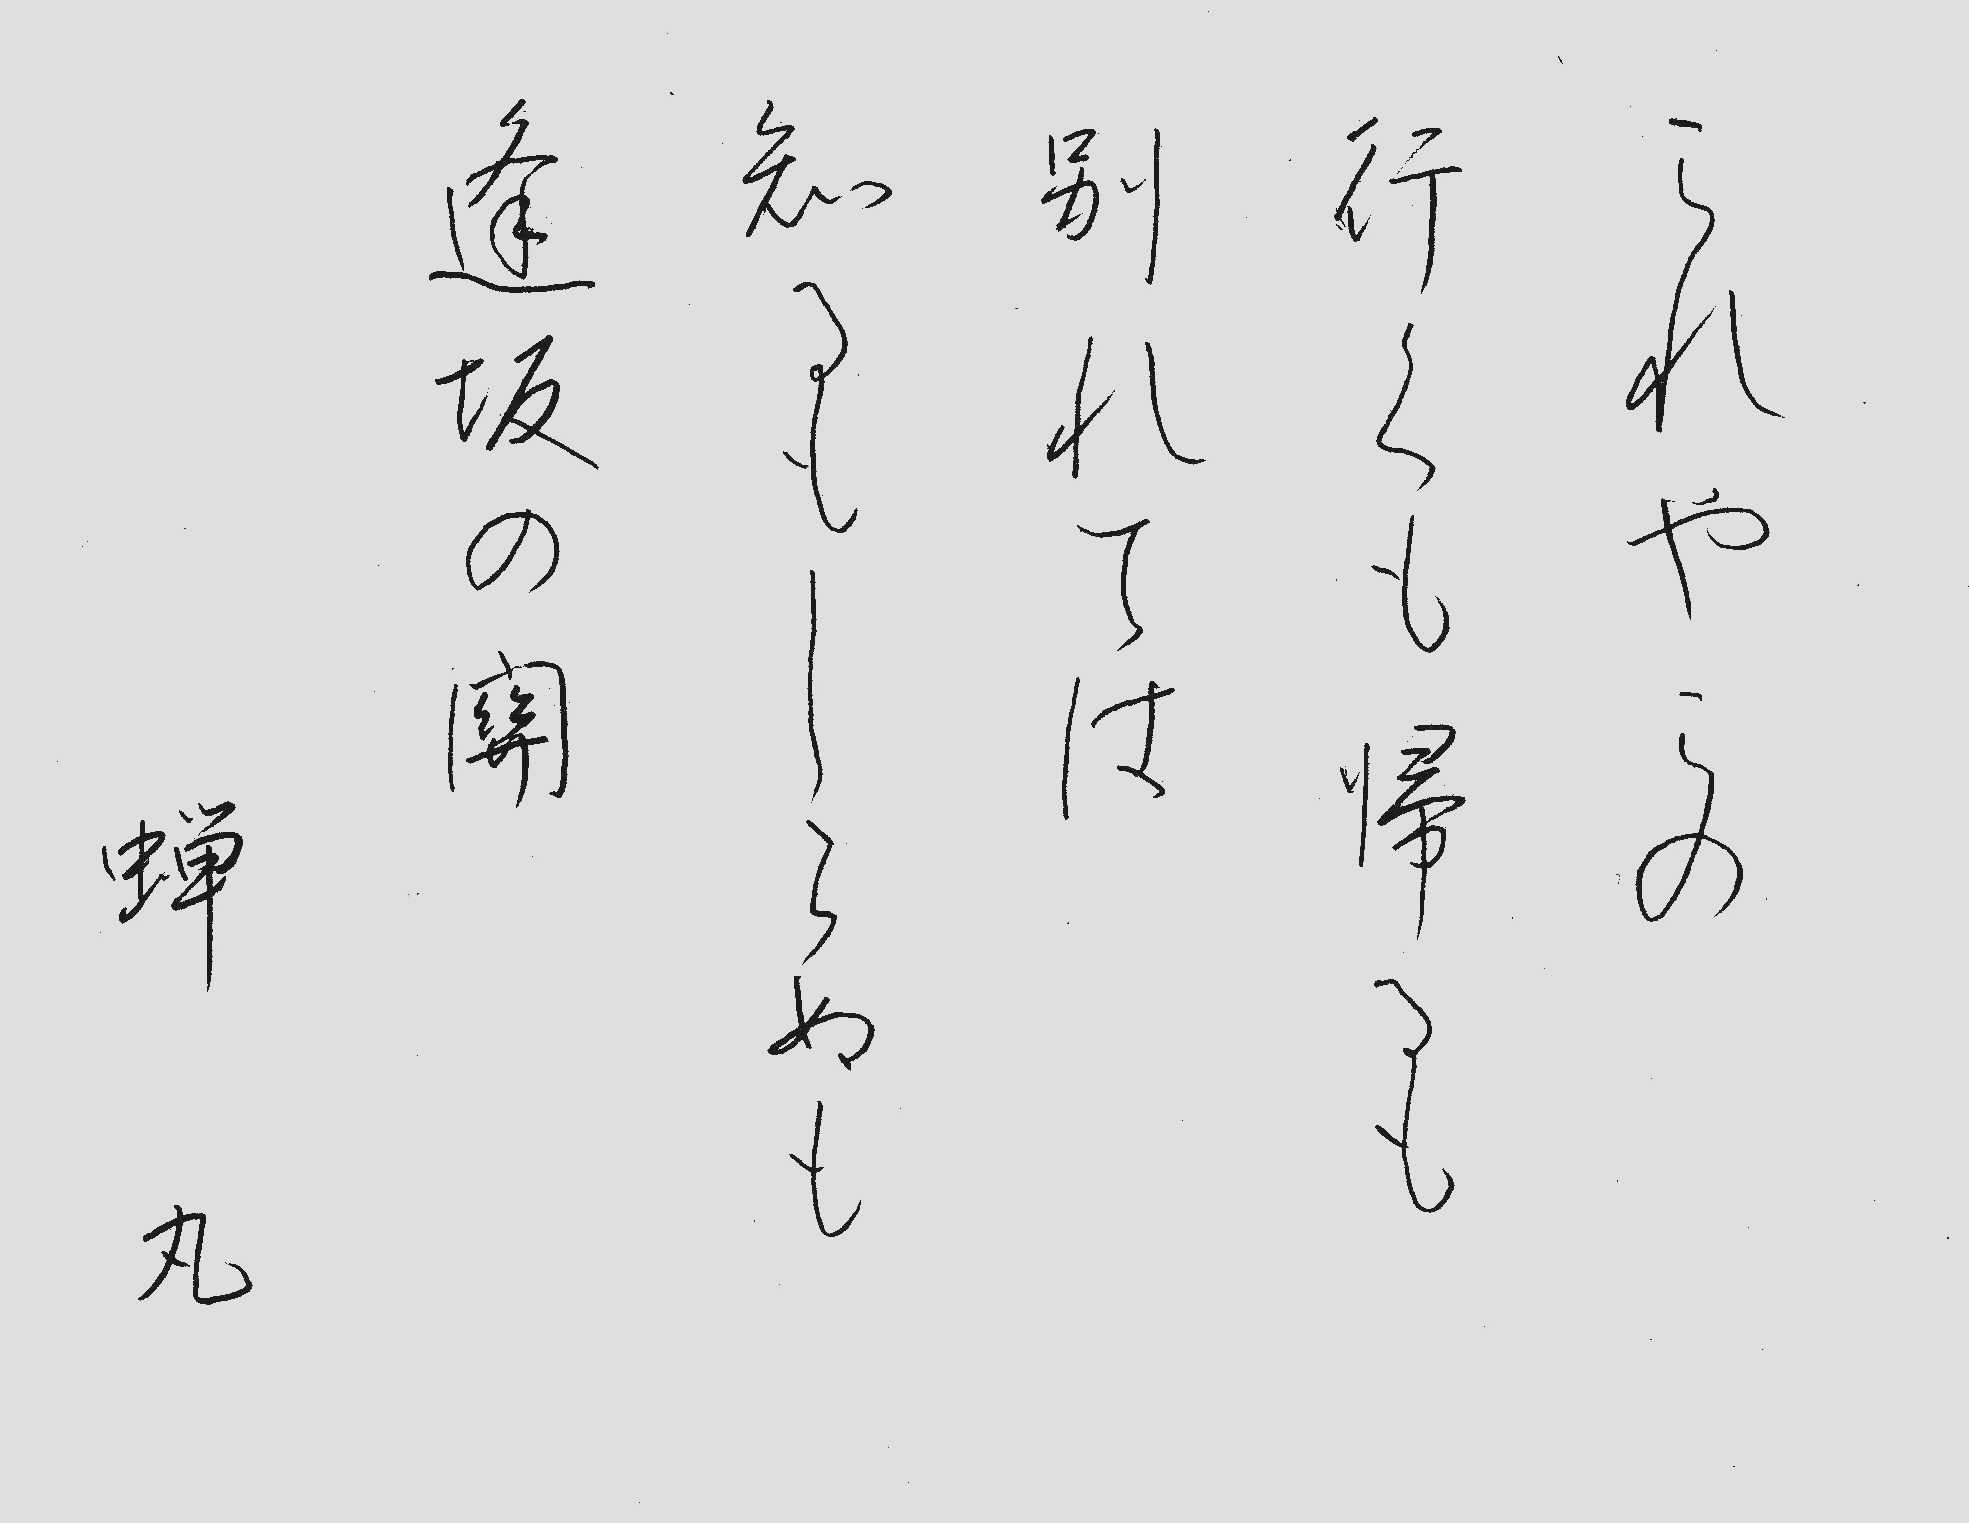 これやこの
行くも帰るも
別れては
知るもしらぬも
逢坂の関
蝉丸